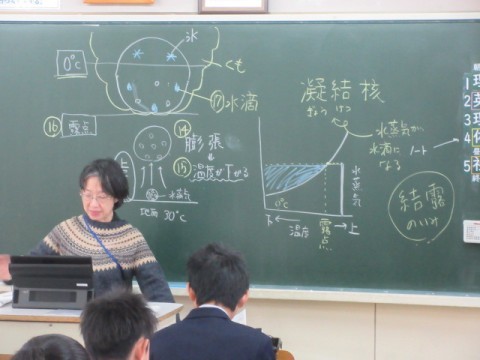 氷
0℃
くも
⑰水滴
⑯露点
⑭
膨張
⑮
温度が下がる
上昇
水蒸気
地面 30℃
凝結核
ぎょう けつ
水蒸気が
水滴に
なる
ノート
水蒸気
0℃
下← 温度 露点 →上
結露
のいみ
1 理
2 英
3 理
4
5 社